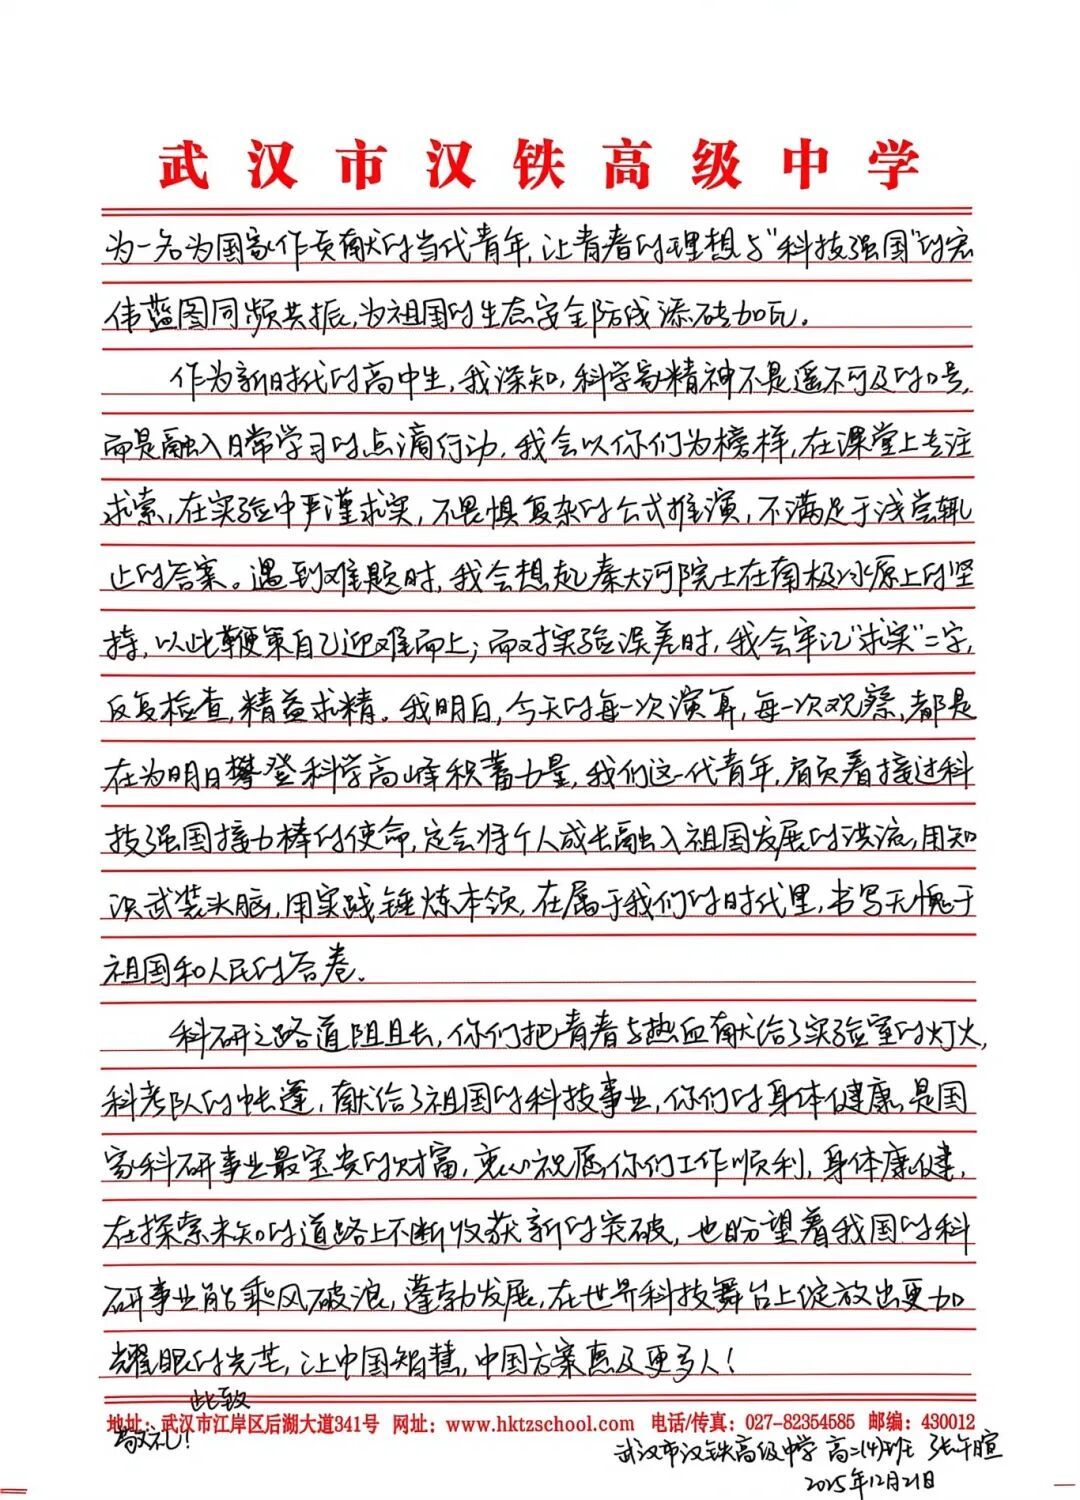 武汉市汉铁高级中学
为一名为国家作贡献的当代青年,让青春的理想与"科技强国"的宏
伟蓝图同频共振,为祖国的生态安全防线添砖加瓦。
作为新时代的高中生,我深知,科学家精神不是遥不可及的口号,
而是融入日常学习的点滴行动,我会以你们为榜样,在课堂上专注
求索,在实验中严谨求实,不畏惧复杂的公式推演,不满足于浅尝辄
止的答案。遇到难题时,我会想起秦大河院士在南极冰原上的坚
持,以此鞭策自己迎难而上;面对实验误差时,我会牢记"求实"二字,
反复检查,精益求精。我明白,今天的每一次演算,每一次观察,都是
在为明日攀登科学高峰积蓄力量,我们这一代青年,肩负着接过科
技强国接力棒的使命,定会将个人成长融入祖国发展的洪流,用知
识武装头脑,用实践锤炼本领,在属于我们的时代里,书写无愧于
祖国和人民的答卷。
科研之路道阻且长,你们把青春与热血献给了实验室的灯火,
科考队的帐篷,献给了祖国的科技事业,你们的身体健康,是国
家科研事业最宝贵的财富,衷心祝愿你们工作顺利,身体康健,
在探索未知的道路上不断收获新的突破,也盼望着我国的科
研事业能乘风破浪,蓬勃发展,在世界科技舞台上绽放出更加
耀眼的光芒,让中国智慧,中国方案惠及更多人!
此致
地址:武汉市江岸区后湖大道341号 网址:www.hktzschool.com 电话/传真:027-82354585 邮编:430012
敬礼!
武汉市汉铁高级中学 高二(4)班 张午暄
2025年12月21日